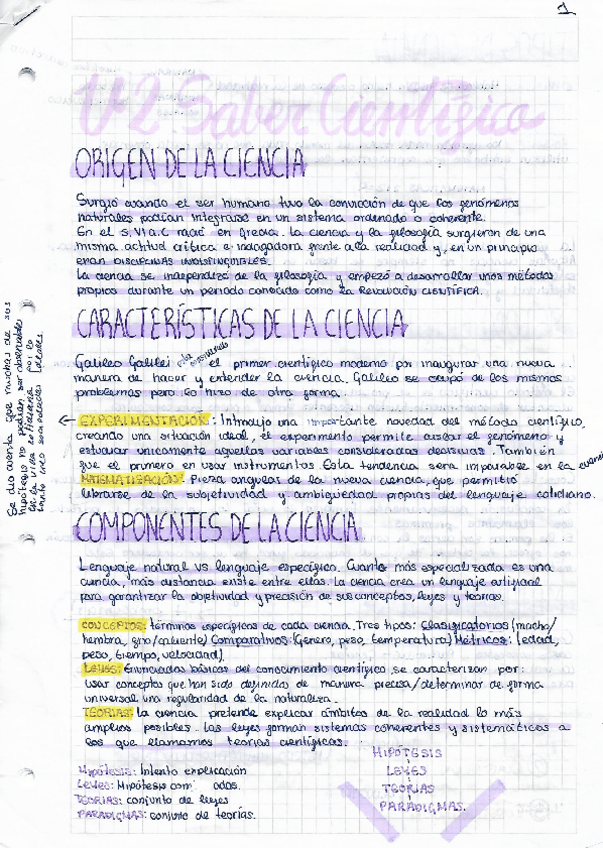 1
U2 Saber Científico
ORIGEN DE LA CIENCIA
Surgió cuando el ser humano tuvo la convicción de que los fenómenos
naturales podían integrarse en un sistema ordenado o coherente.
En el S. VI a.C nació en Grecia. La ciencia y la filosofía surgieron de una
misma actitud crítica e indagadora frente a la realidad y, en un principio
eran DISCIPLINAS INDISTINGUIBLES.
La ciencia se independizó de la filosofía y empezó a desarrollar unos métodos
propios durante un periodo conocido como la REVOLUCIÓN CIENTÍFICA.
CARACTERÍSTICAS DE LA CIENCIA
Galileo Galilei está considerado el primer científico moderno por inaugurar una nueva
manera de hacer y entender la ciencia. Galileo se ocupó de los mismos
problemas pero lo hizo de otra forma.
← EXPERIMENTACIÓN: Introdujo una importante novedad del método científico,
creando una situación ideal, el experimento permite aislar el fenómeno y
estudiar únicamente aquellas variables consideradas decisivas. También
que el primero en usar instrumentos. Esta tendencia sera imparable en la ciencia
MATEMATIZACIÓN: Pieza angular de la nueva ciencia, que permitió
librarse de la subjetividad y ambigüedad propias del lenguaje cotidiano.
Se dio cuenta que muchas de sus
hipótesis no podían ser observables
en la vida cotidiana por lo
tanto creó situaciones ideales.
COMPONENTES DE LA CIENCIA
Lenguaje natural vs lenguaje específico. Cuanto más especializada es una
ciencia, más distancia existe entre ellas. La ciencia crea un lenguaje artificial
para garantizar la objetividad y precisión de sus conceptos, leyes y teorías.
CONCEPTOS: términos específicos de cada ciencia. Tres tipos: Clasificatorios (macho/
hembra, frío/caliente) Comparativos: (Género, peso, temperatura) Métricos: (edad,
peso, tiempo, velocidad)
LEYES: Enunciados básicos del conocimiento científico, se caracterizan por:
usar conceptos que han sido definidos de manera precisa/determinar de forma
universal una regularidad de la naturaleza.
TEORÍAS: la ciencia pretende explicar ámbitos de la realidad lo más
amplios posibles. Las leyes forman sistemas coherentes y sistemáticos a
los que llamamos teorías científicas.
Hipótesis: Intento explicación
Leyes: Hipótesis com adas.
TEORÍAS: conjunto de leyes
PARADIGMAS: conjunto de teorías.
HIPÓTESIS
LEYES
TEORÍAS
PARADIGMAS.